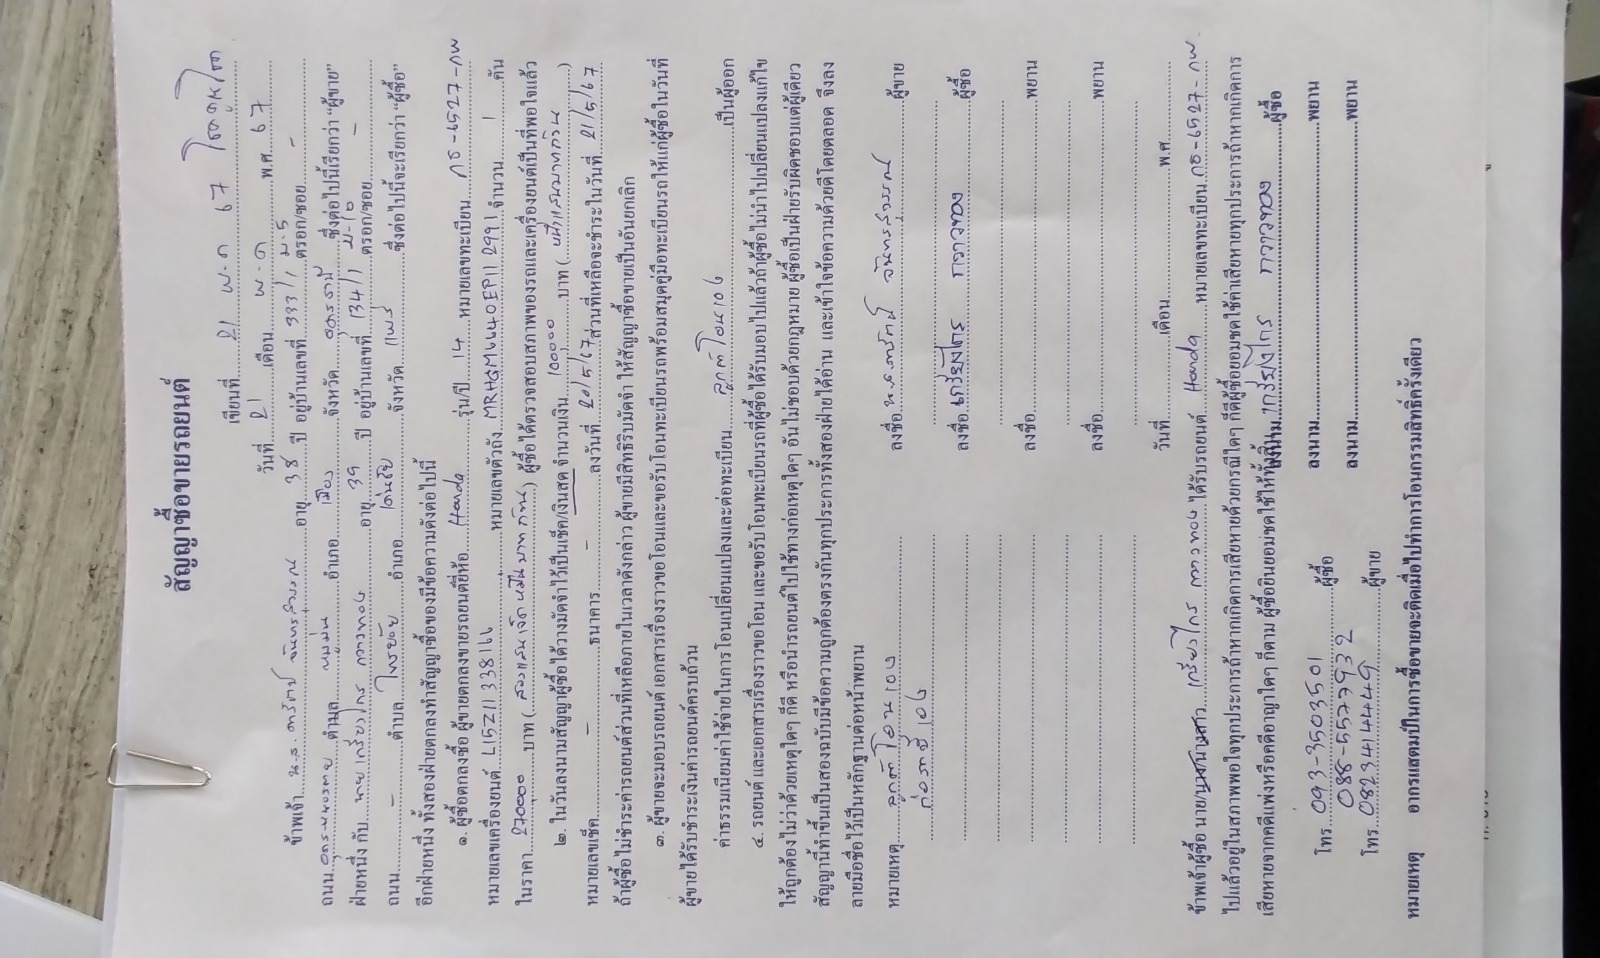 สัญญาซื้อขายรถยนต์
เขียนที่ 21 พ.ค 67
วันที่ 21 เดือน พ.ค พ.ศ. 67
ข้าพเจ้า น.ส. อายุ 38 ปี อยู่บ้านเลขที่ 333/1 ม.5 ตรอก/ซอย -
ถนน ตำบล หมูม่น อำเภอ เมือง จังหวัด อุดรธานี ซึ่งต่อไปนี้เรียกว่า "ผู้ขาย"
ฝ่ายหนึ่ง กับ นายเกรียงไกร กาวทอง อายุ 39 ปี อยู่บ้านเลขที่ 134/1 ม.10 ตรอก/ซอย -
ถนน - ตำบล ไทรย้อย อำเภอ เด่นชัย จังหวัด แพร่ ซึ่งต่อไปนี้จะเรียกว่า "ผู้ซื้อ"
อีกฝ่ายหนึ่ง ทั้งสองฝ่ายตกลงทำสัญญาซื้อของมีข้อความดังต่อไปนี้
๑. ผู้ซื้อตกลงซื้อ ผู้ขายตกลงขายรถยนต์ยี่ห้อ Honda รุ่น/ปี 14 หมายเลขทะเบียน กธ-6527-กพ
หมายเลขเครื่องยนต์ L15Z11338166 หมายเลขตัวถัง MRHGM6640EP1112991 จำนวน 1 คัน
ในราคา 270000 บาท (สองแสนเจ็ดหมื่นบาทถ้วน) ผู้ซื้อได้ตรวจสอบสภาพของรถและเครื่องยนต์เป็นที่พอใจแล้ว
๒. ในวันลงนามสัญญาผู้ซื้อได้วางมัดจำไว้เป็นเช็ค/เงินสด จำนวนเงิน 100000 บาท (หนึ่งแสนบาทถ้วน)
หมายเลขเช็ค - ธนาคาร - ลงวันที่ 20/5/67 ส่วนที่เหลือจะชำระในวันที่ 21/5/67
ถ้าผู้ซื้อไม่ชำระค่ารถยนต์ส่วนที่เหลือภายในเวลาดังกล่าว ผู้ขายมีสิทธิริบมัดจำ ให้สัญญาซื้อขายเป็นอันยกเลิก
๓. ผู้ขายจะมอบรถยนต์ เอกสารเรื่องราวขอโอนและขอรับโอนทะเบียนรถพร้อมสมุดคู่มือทะเบียนรถให้แก่ผู้ซื้อในวันที่
ผู้ขายได้รับชำระเงินค่ารถยนต์ครบถ้วน
ค่าธรรมเนียมค่าใช้จ่ายในการโอนเปลี่ยนแปลงและต่อทะเบียน ลูกค้าโอนเอง เป็นผู้ออก
๔. รถยนต์ และเอกสารเรื่องราวขอโอน และขอรับโอนทะเบียนรถที่ผู้ซื้อได้รับมอบไปแล้วถ้าผู้ซื้อไม่นำไปเปลี่ยนแปลงแก้ไข
ให้ถูกต้องไม่ว่าด้วยเหตุใดๆ ก็ดี หรือนำรถยนต์ไปใช้ทางก่อเหตุใดๆ อันไม่ชอบด้วยกฎหมาย ผู้ซื้อเป็นฝ่ายรับผิดชอบแต่ผู้เดียว
สัญญานี้ทำขึ้นเป็นสองฉบับมีข้อความถูกต้องตรงกันทุกประการทั้งสองฝ่ายได้อ่าน และเข้าใจข้อความด้วยดีโดยตลอด จึงลง
ลายมือชื่อไว้เป็นหลักฐานต่อหน้าพยาน
หมายเหตุ ลูกค้าโอนเอง
ต่อภาษีเอง
ลงชื่อ น.ส. ผู้ขาย
ลงชื่อ เกรียงไกร กาวทอง ผู้ซื้อ
ลงชื่อ พยาน
ลงชื่อ พยาน
วันที่ เดือน พ.ศ.
ข้าพเจ้าผู้ซื้อ นาย/นาง/นางสาว เกรียงไกร กาวทอง ได้รับรถยนต์ Honda หมายเลขทะเบียน กธ-6527-กพ.
ไปแล้วอยู่ในสภาพพอใจทุกประการถ้าหากเกิดการเสียหายด้วยกรณีใดๆ ก็ดีผู้ซื้อยอมชดใช้ค่าเสียหายทุกประการถ้าหากเกิดการ
เสียหายจากคดีแพ่งหรือคดีอาญาใดๆ ก็ตาม ผู้ซื้อยินยอมชดใช้ให้ทั้งสิ้น
ลงนาม เกรียงไกร กาวทอง ผู้ซื้อ
โทร. 093-3503501 ผู้ซื้อ ลงนาม พยาน
088-5577932
โทร. 0823414449 ผู้ขาย ลงนาม พยาน
หมายเหตุ อากรแสตมป์ในการซื้อขายจะติดเมื่อไปทำการโอนกรรมสิทธิ์ครั้งเดียว